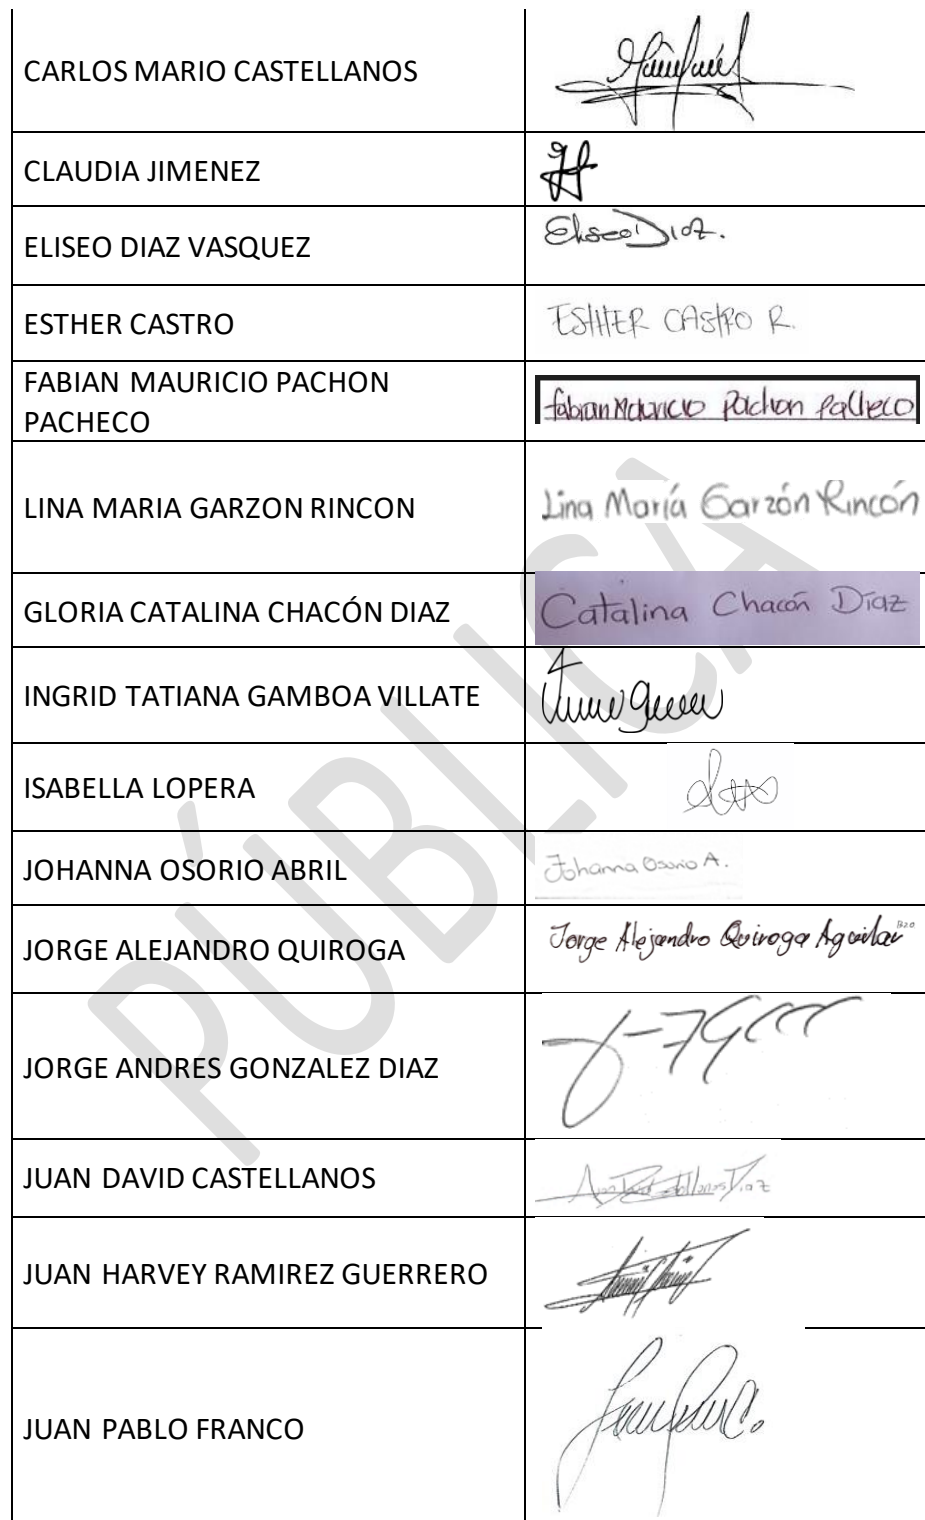 CARLOS MARIO CASTELLANOS
CLAUDIA JIMENEZ
ELISEO DIAZ VASQUEZ
Eliseo Diaz.
ESTHER CASTRO
ESTHER CASTRO R.
FABIAN MAURICIO PACHON
PACHECO
fabian Mauricio Pachon Pacheco
LINA MARIA GARZON RINCON
Lina María Garzón Rincón
GLORIA CATALINA CHACÓN DIAZ
Catalina Chacón Díaz
INGRID TATIANA GAMBOA VILLATE
ISABELLA LOPERA
JOHANNA OSORIO ABRIL
Johanna Osorio A.
JORGE ALEJANDRO QUIROGA
Jorge Alejandro Quiroga Aguilar
JORGE ANDRES GONZALEZ DIAZ
JUAN DAVID CASTELLANOS
Juan David Castellanos Diaz
JUAN HARVEY RAMIREZ GUERRERO
JUAN PABLO FRANCO
PÚBLICA